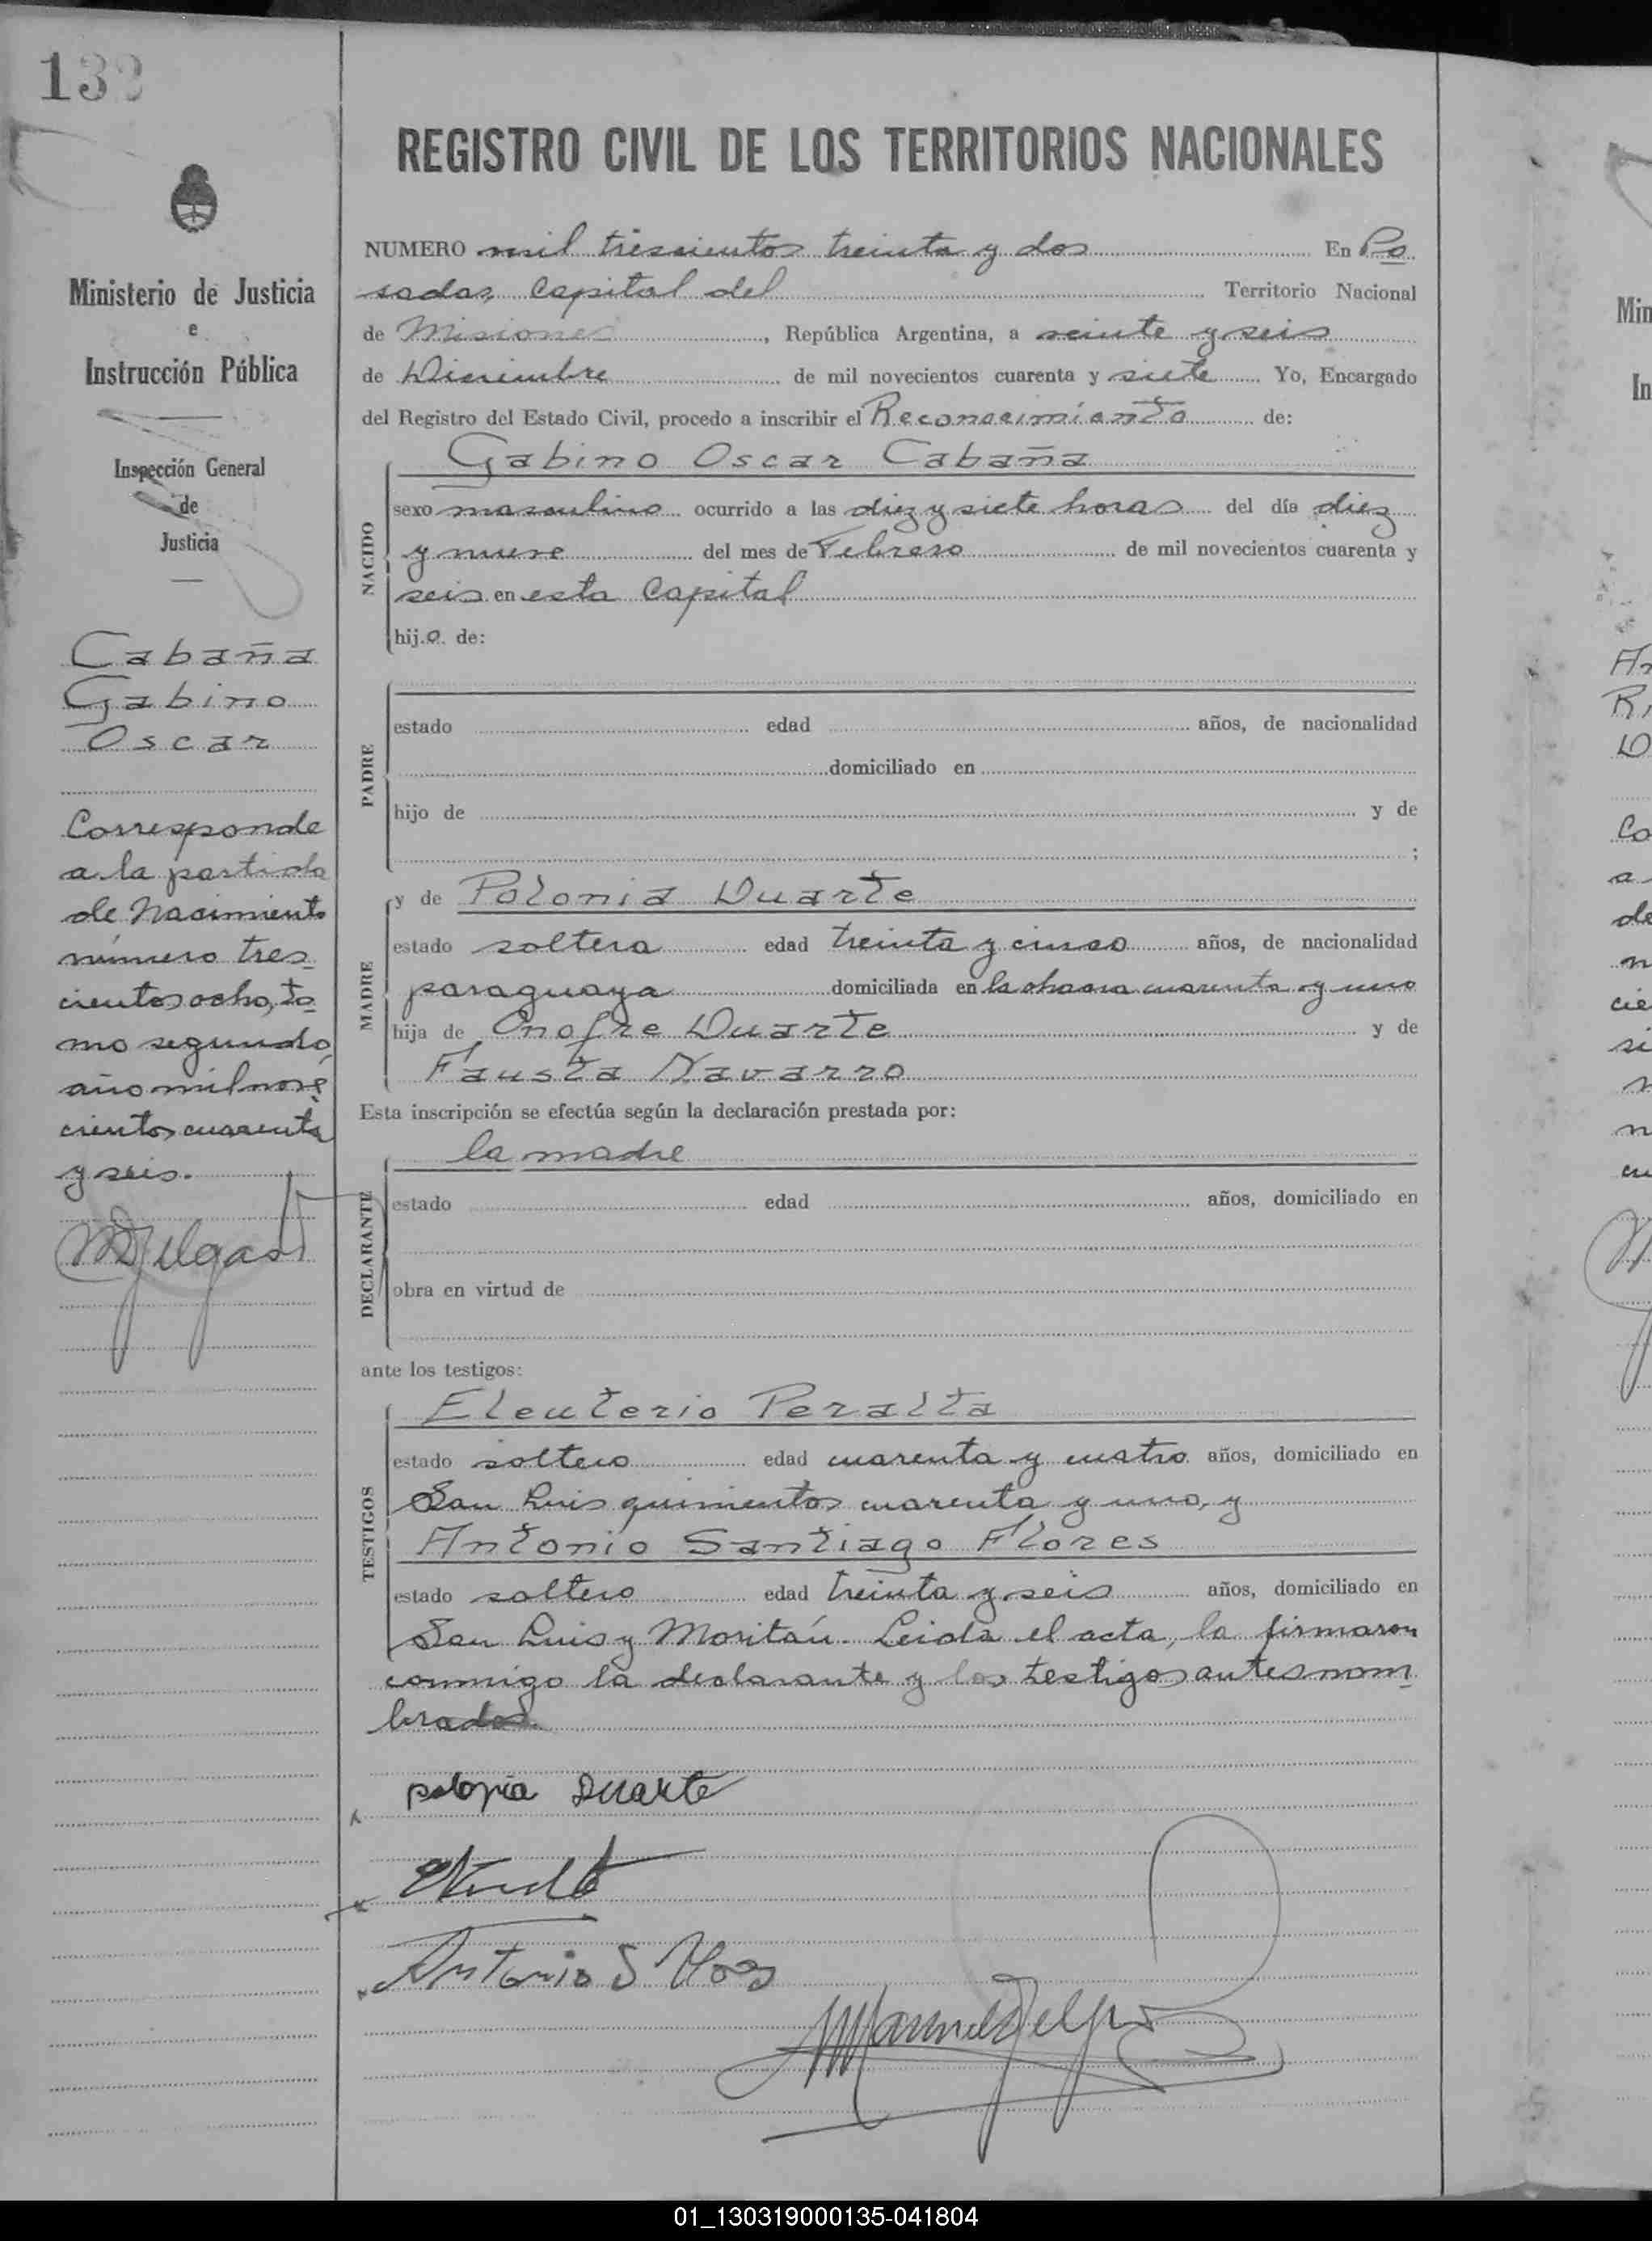 132
REGISTRO CIVIL DE LOS TERRITORIOS NACIONALES
Ministerio de Justicia
e
Instrucción Pública
Inspección General
de
Justicia
Cabaña
Gabino
Oscar
Corresponde
a la partida
de Nacimiento
número tres
cientos ocho, to
mo segundo,
año mil nove
cientos cuarenta
y seis.
NUMERO mil trescientos treinta y dos En Po
sadas, Capital del Territorio Nacional
de Misiones, República Argentina, a veinte y seis
de Diciembre de mil novecientos cuarenta y siete Yo, Encargado
del Registro del Estado Civil, procedo a inscribir el Reconocimiento de:
Gabino Oscar Cabaña
NACIDO
sexo masculino ocurrido a las diez y siete horas del día diez
y nueve del mes de Febrero de mil novecientos cuarenta y
seis en esta Capital
hijo de:
PADRE
estado edad años, de nacionalidad
domiciliado en
hijo de y de
;
y de Polonia Duarte
MADRE
estado soltera edad treinta y cinco años, de nacionalidad
paraguaya domiciliada en la chacra cuarenta y uno
hija de Onofre Duarte y de
Fausta Navarro
Esta inscripción se efectúa según la declaración prestada por:
la madre
DECLARANTE
estado edad años, domiciliado en
obra en virtud de
ante los testigos:
Eleuterio Peralta
TESTIGOS
estado soltero edad cuarenta y cuatro años, domiciliado en
San Luis quinientos cuarenta y uno, y
Antonio Santiago Flores
estado soltero edad treinta y seis años, domiciliado en
San Luis y Moritán. Leida el acta, la firmaron
conmigo la declarante y los testigos antes nom
brados.
polonia Duarte
Antonio S Flores
01_130319000135-041804